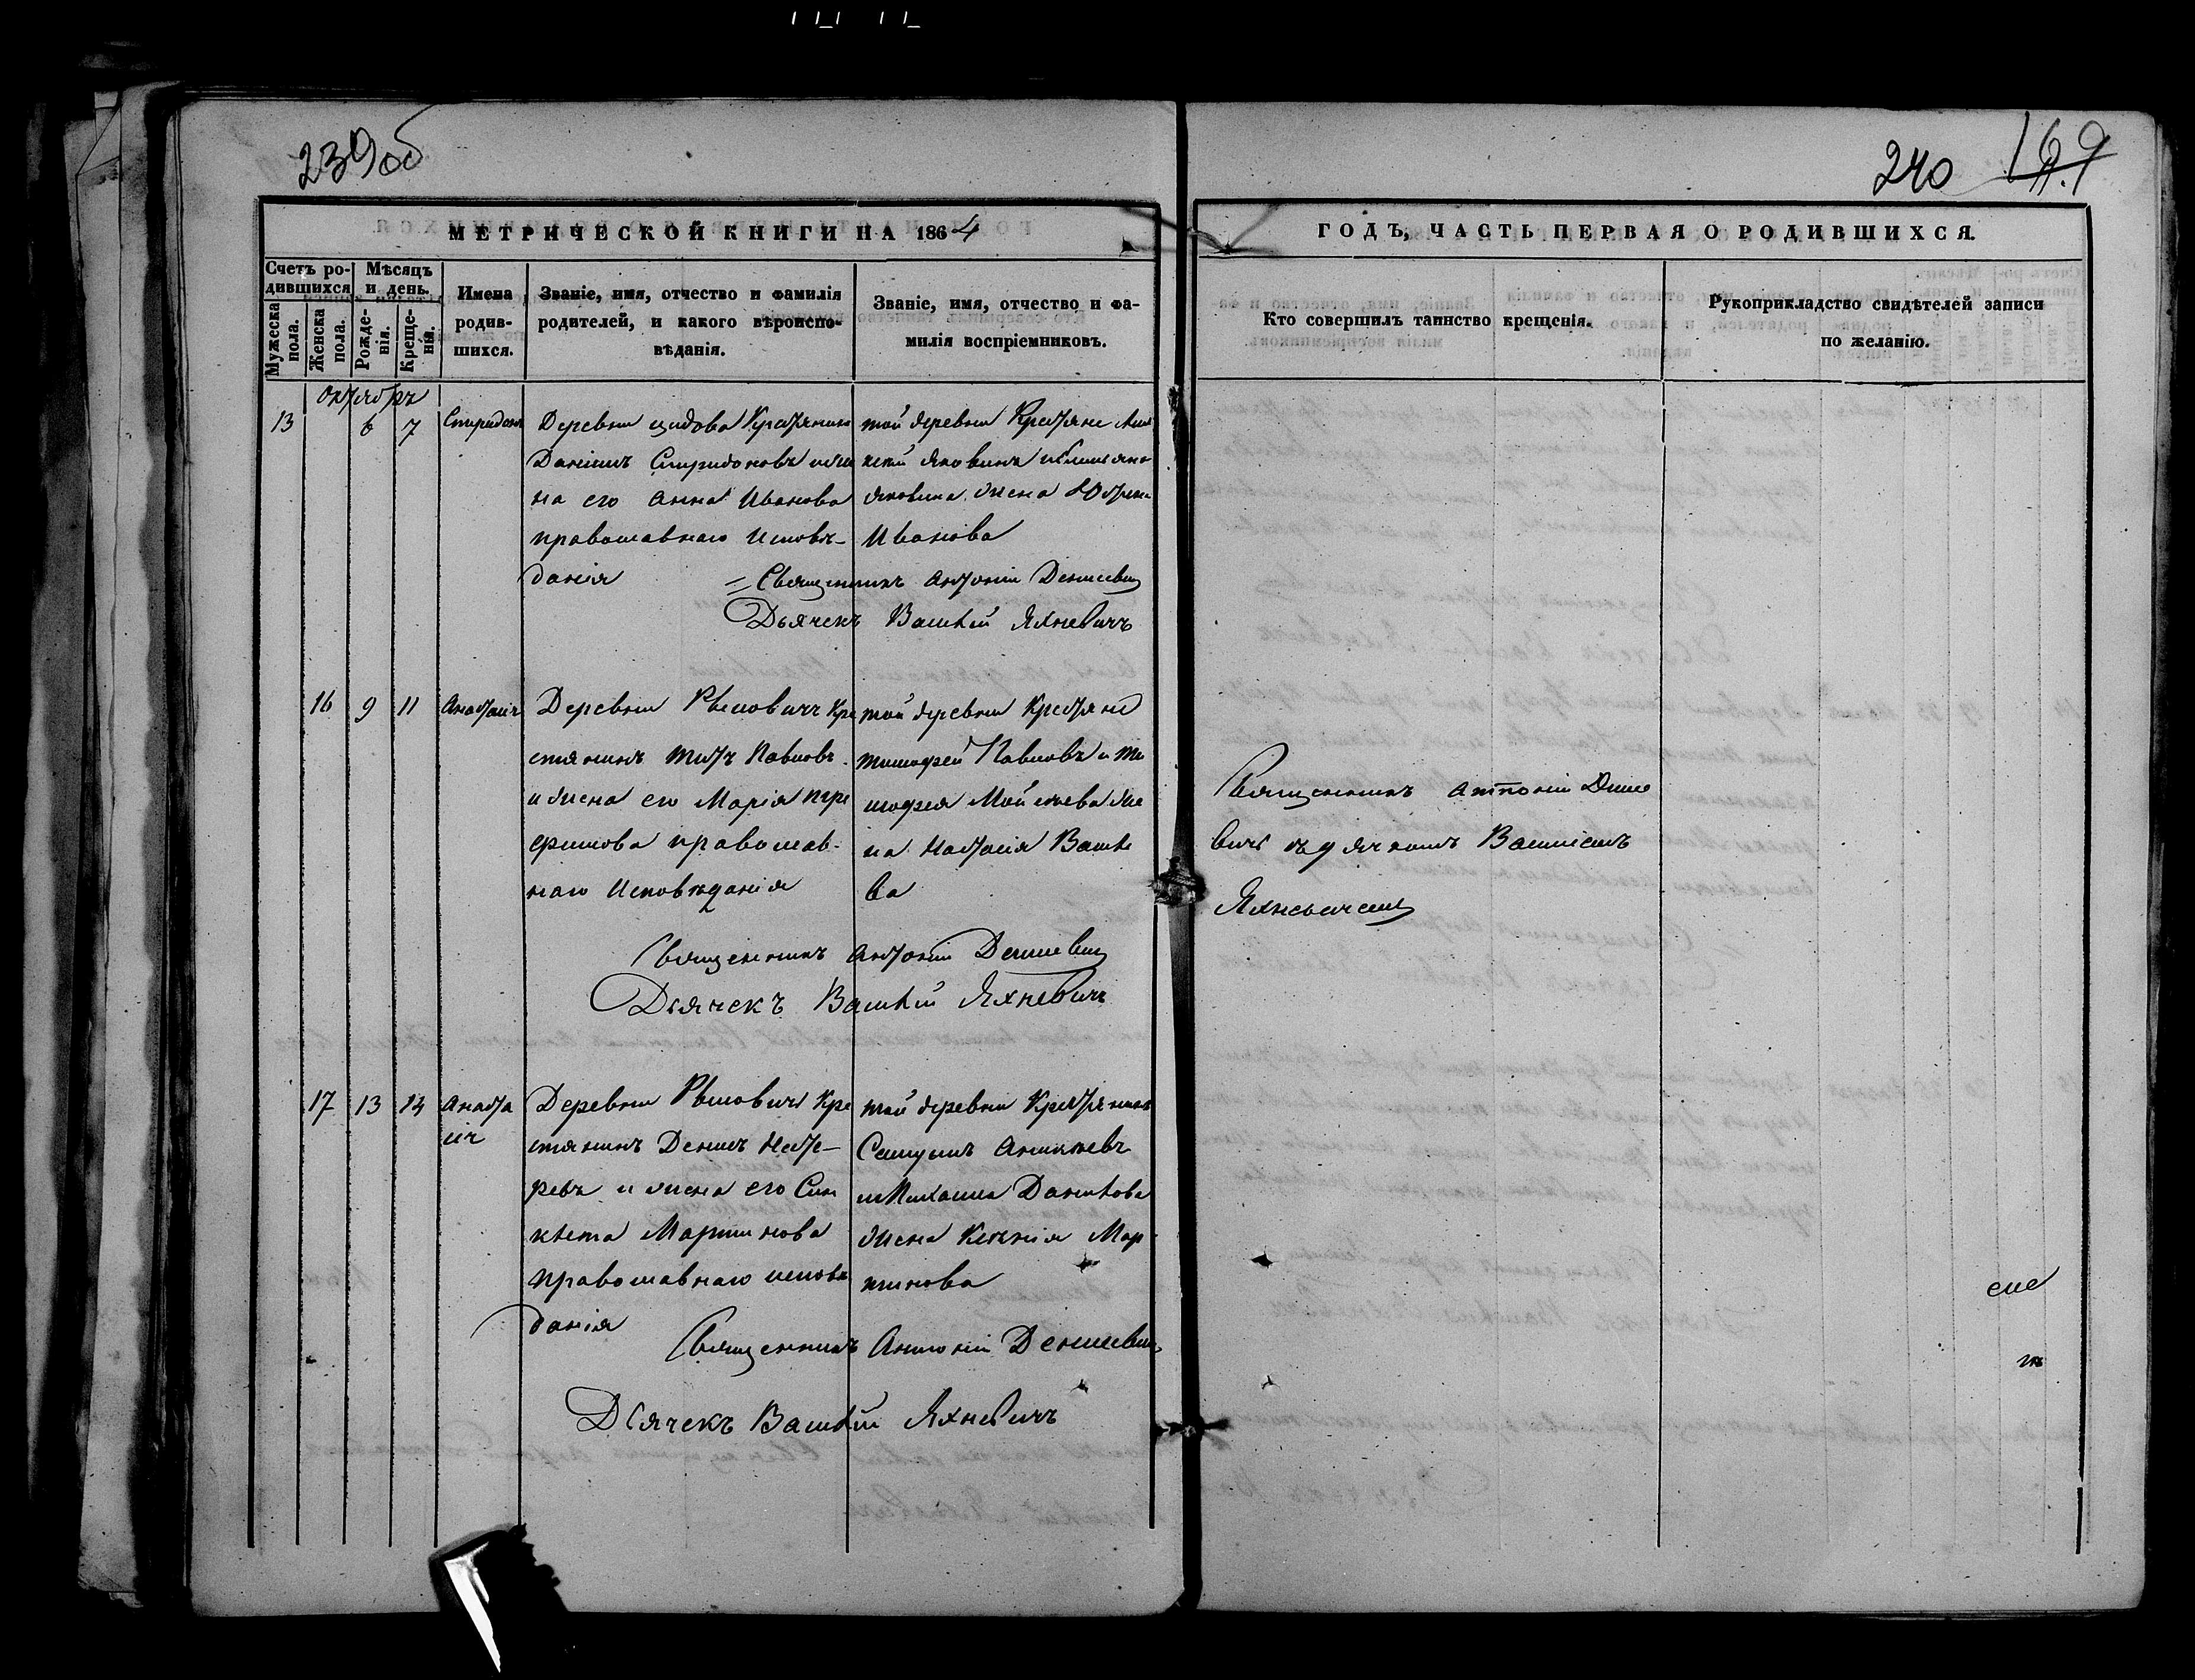 239об
240 169
МЕТРИЧЕСКОЙ КНИГИ НА 1864
ГОДЪ, ЧАСТЬ ПЕРВАЯ О РОДИВШИХСЯ.
Счетъ родившихся
Мужеска пола.
Женска пола.
Мѣсяцъ и день.
Рожденія.
Крещенія.
Имена родившихся.
Званіе, имя, отчество и фамилія
родителей, и какого вѣроисповѣданія.
Званіе, имя, отчество и фамилія воспріемниковъ.
Кто совершилъ таинство крещенія.
Рукоприкладство свидѣтелей записи
по желанію.
Октябрь
13 6 7 Спиридонъ
Деревни Крестьянинъ
Даніилъ Спиридоновъ и же
на его Анна Иванова
православнаго исповѣ-
данія
той деревни Крестьяне
Яковина жена
Иванова
Священникъ Антоній Денисевич
Дьячекъ Василій Яхневичъ
16 9 11 Анастасія
Деревни Кре
стянинъ Титъ Павловъ
и жена его Марія
православ-
наго Исповѣданія
той деревни Крестьяне
Тимофей Павловъ и Ти
мофея Мойсеева же
на Настасія Василье
ва
Священникъ Антоній Денисевич
Дьячекъ Василій Яхневичъ
Священникъ Антоній Денисе
вичъ съ дячкомъ Василіемъ
Яхневичемъ
17 13 14 Анаста
сія
Деревни Кре
стянинъ Денисъ
и жена его Син
клета Мартинова
православнаго исповѣ
данія
той деревни Крестянинъ
Самуилъ
и Михаила Данилова
жена Ксенія Мар
тинова
Священникъ Антоній Денисевич
Дьячекъ Василій Яхневичъ